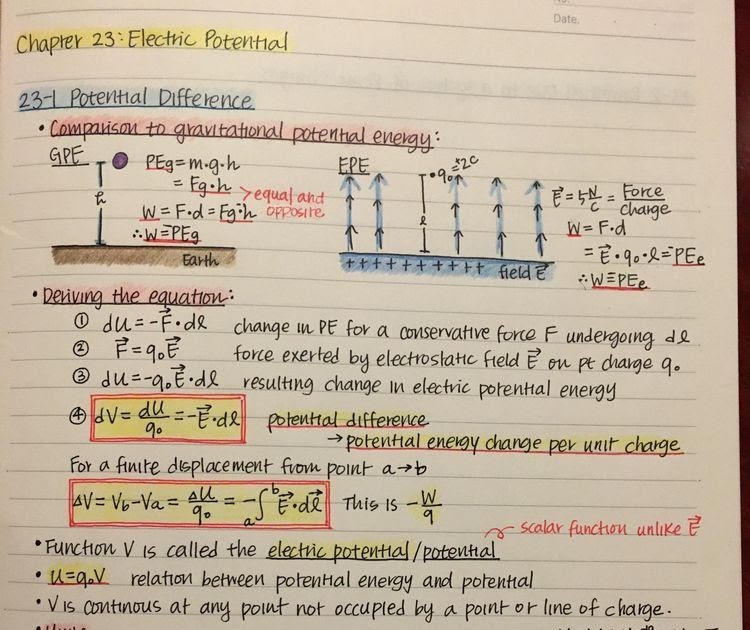 Date.
Chapter 23: Electric Potential
23-1 Potential Difference
• Comparison to gravitational potential energy:
GPE
h
PEg = m·g·h
= Fg·h
W = F·d = Fg·h
∴ W = PEg
equal and opposite
Earth
EPE
• q₀ = +2C
l
+ + + + + + + + + + + field E⃗
E⃗ = 5 N/C = Force/charge
W = F·d
= E⃗·q₀·l = PEe
∴ W = PEe
• Deriving the equation:
① du = -F⃗·dl change in PE for a conservative force F undergoing dl
② F⃗ = q₀E⃗ force exerted by electrostatic field E⃗ on pt charge q₀
③ du = -q₀E⃗·dl resulting change in electric potential energy
④ dV = du/q₀ = -E⃗·dl potential difference
→ potential energy change per unit charge
For a finite displacement from point a→b
ΔV = Vb - Va = ΔU/q₀ = -∫ₐᵇ E⃗·dl⃗ This is -W/q
scalar function unlike E⃗
• Function V is called the electric potential/potential
• U = q₀V relation between potential energy and potential
• V is continous at any point not occupied by a point or line of charge.